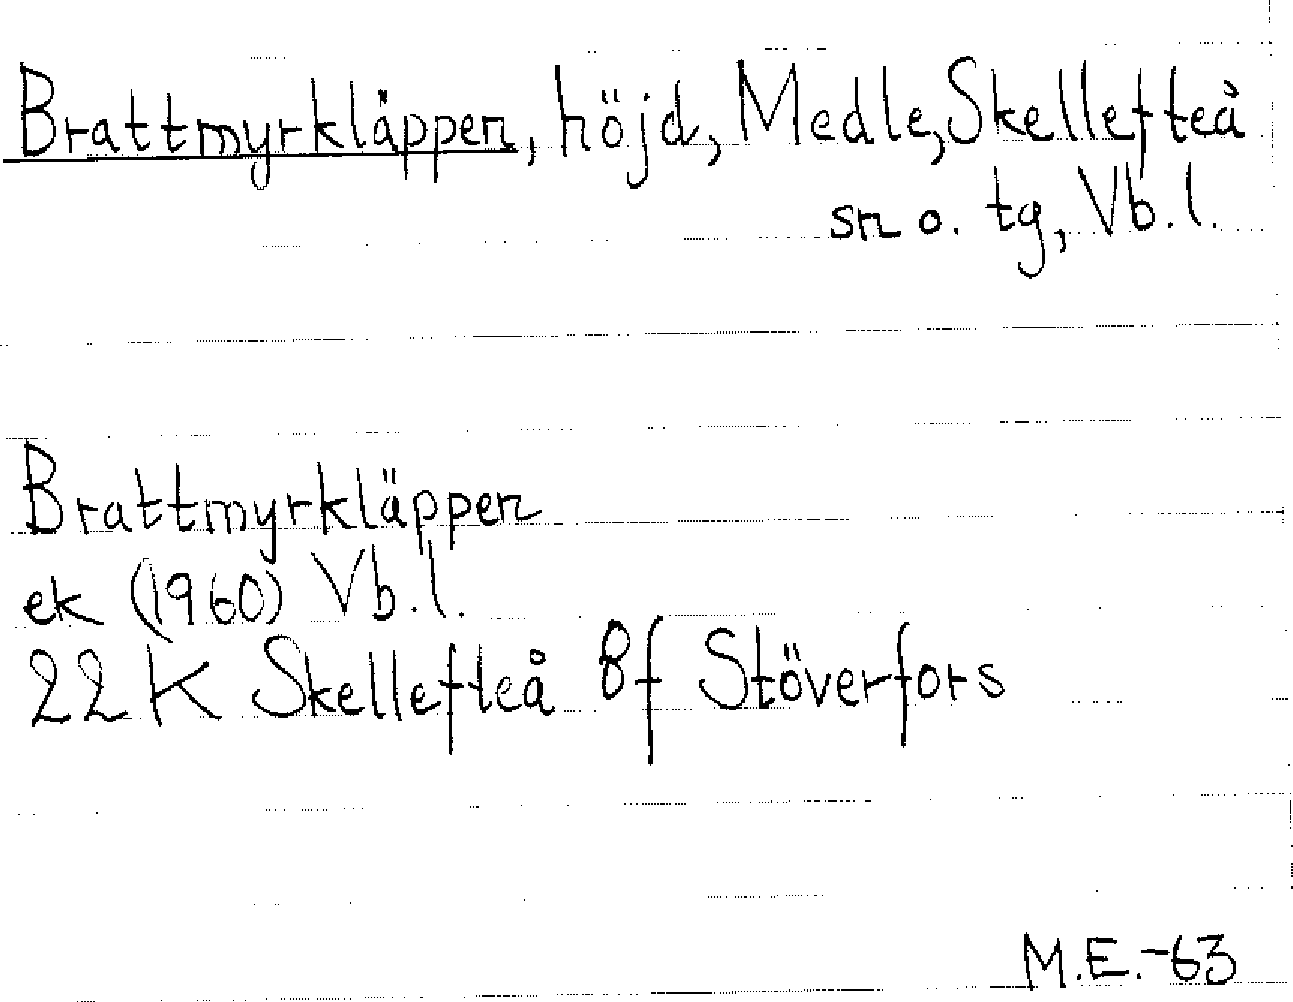 Brattmyrkläppen, höjd, Medle, Skellefteå
sn o. tg, Vb. l.
Brattmyrkläppen
ek (1960) Vb. l.
22 K Skellefteå 8f Stöverfors
M.E.-63